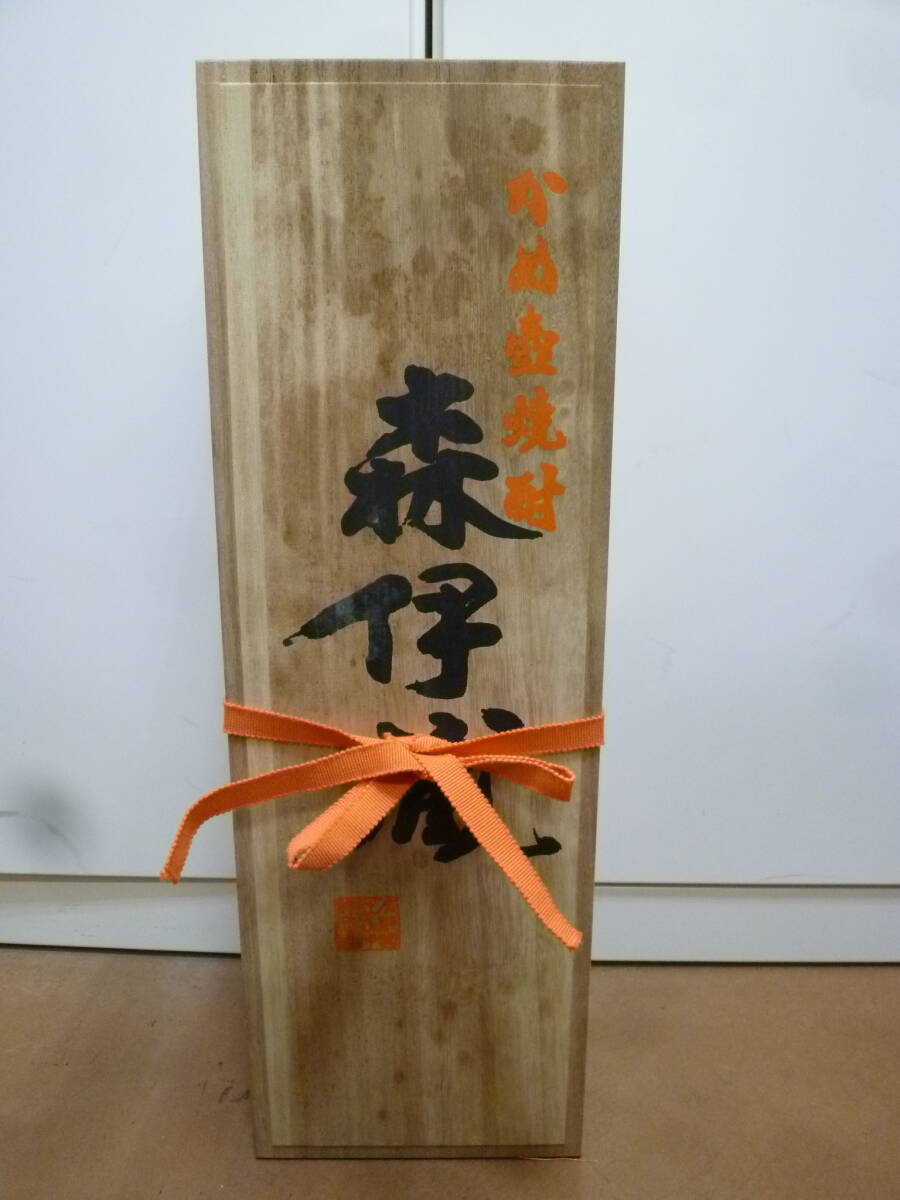 かめ壺焼酎
森伊蔵